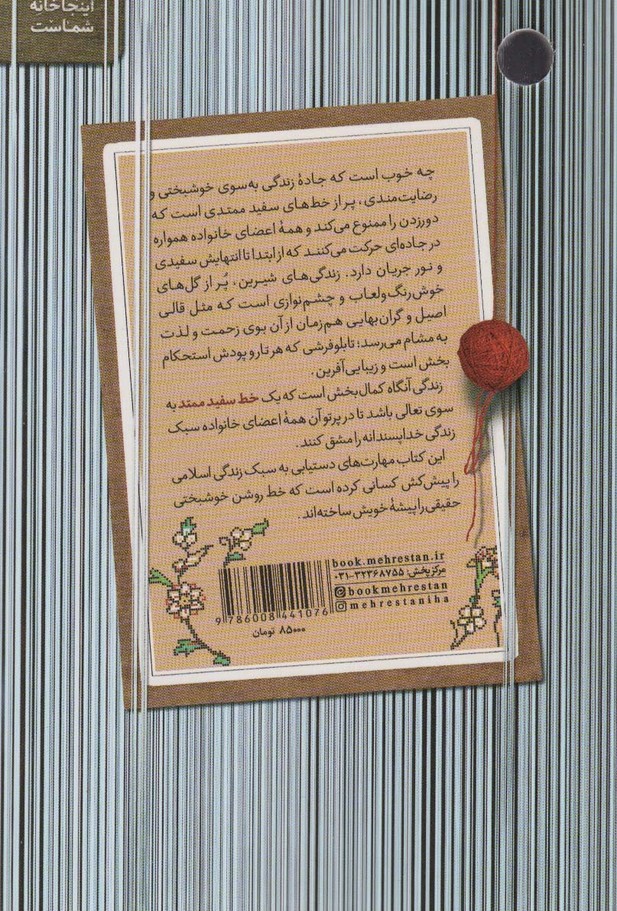 اینجا خانه
شماست
چه خوب است که جادهٔ زندگی به‌سوی خوشبختی و
رضایت‌مندی، پر از خط‌های سفید ممتدی است که
دورزدن را ممنوع می‌کند و همهٔ اعضای خانواده همواره
در جاده‌ای حرکت می‌کنند که از ابتدا تا انتهایش سفیدی
و نور جریان دارد. زندگی‌های شیرین، پُر از گل‌های
خوش‌رنگ‌ولعاب و چشم‌نوازی است که مثل قالی
اصیل و گران‌بهایی هم‌زمان از آن بوی زحمت و لذت
به مشام می‌رسد؛ تابلوفرشی که هر تار و پودش استحکام
بخش است و زیبایی‌آفرین.
زندگی آنگاه کمال‌بخش است که یک خط سفید ممتد به
سوی تعالی باشد تا در پرتو آن همهٔ اعضای خانواده سبک
زندگی خداپسندانه را مشق کنند.
این کتاب مهارت‌های دستیابی به سبک زندگی اسلامی
را پیش‌کش کسانی کرده است که خط روشن خوشبختی
حقیقی را پیشهٔ خویش ساخته‌اند.
book.mehrestan.ir
مرکز پخش: ۰۳۱-۳۲۳۶۸۷۵۵
bookmehrestan
mehrestaniha
9 786008 441076
۸۵۰۰۰ تومان